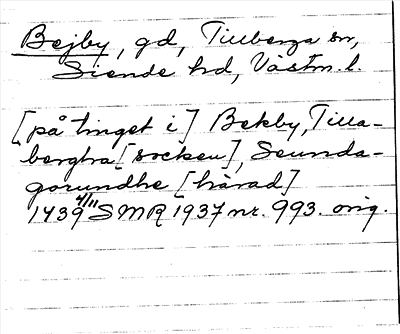 Bejby, gd, Tillberga sn,
Siende hd, Västm. l.
[på tinget i] Bekby, Tilla-
bergha [socken], Seunda-
gorundhe [härad]
1439 4/11 SMR 1937 nr. 993. orig.